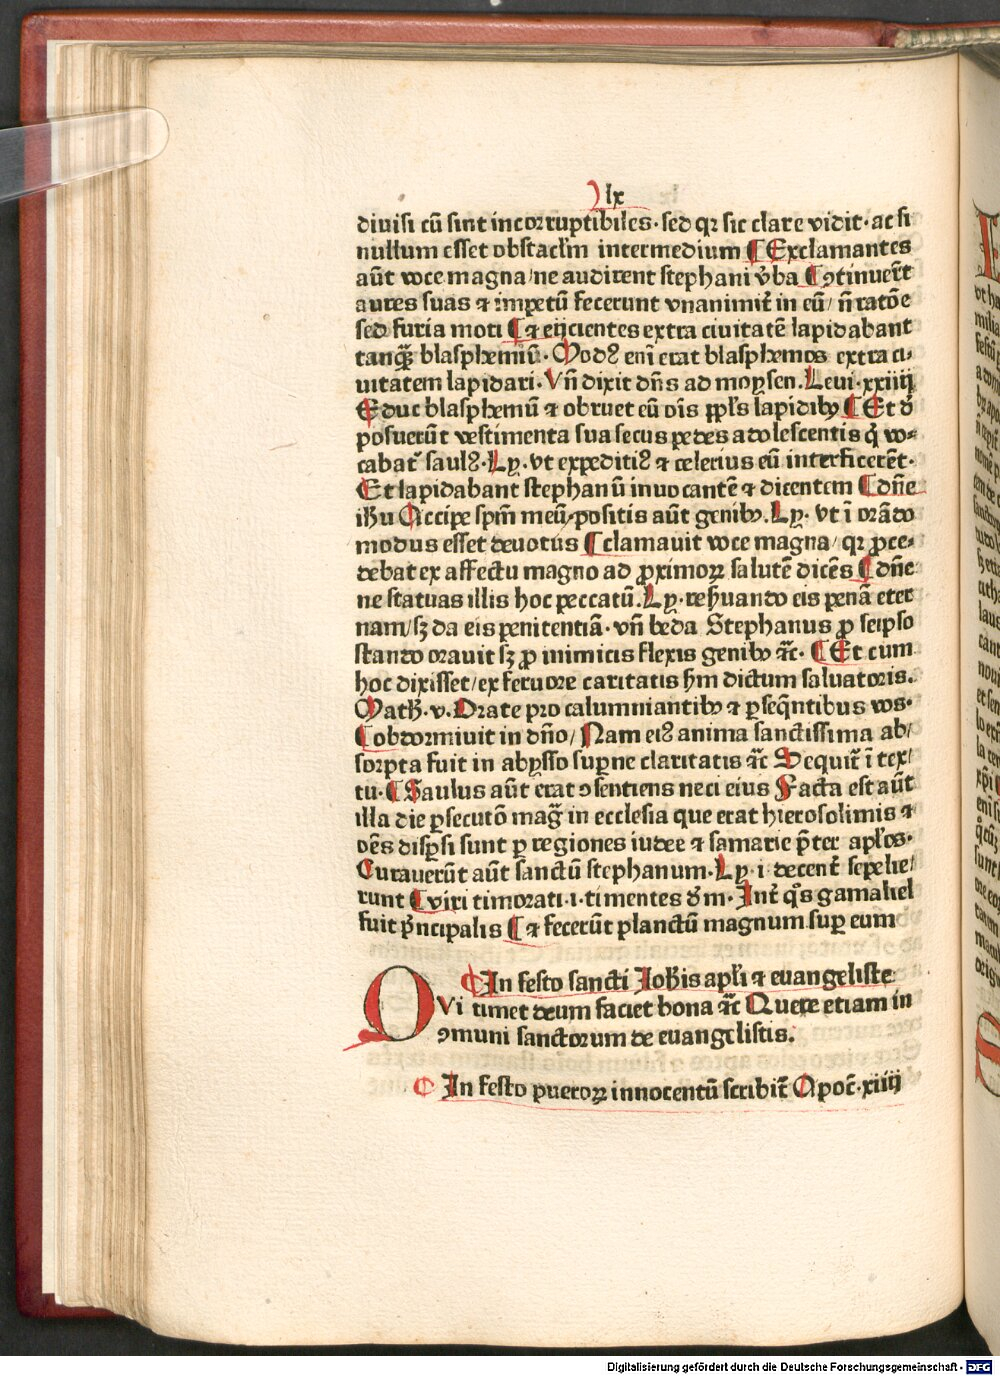 lx
diuisi cū sint incorruptibiles · sed qꝛ sic clare vidit · ac si
nullum esset obstacl'm intermedium ¶ Exclamantes
aūt voce magna / ne audirent stephani v̄ba ¶ ꝯtinuer̄t
aures suas ⁊ impetū fecerunt vnanimit̄ in eū / n̄ ratōe
sed furia moti ¶ ⁊ eijcientes extra ciuitatē lapidabant
tanqꝫ blasphemiū · Modꝰ enī erat blasphemos extra ci⸗
uitatem lapidari · Vn̄ dixit dn̄s ad moysen. Leui · xxiiij
Educ blasphemū ⁊ obruet eū oīs ppl's lapidibꝰ ¶ Et d̄
posuerūt vestimenta sua secus pedes adolescentis q̄ vo⸗
cabat̄ saulꝰ · Ly · vt expeditiꝰ ⁊ celerius eū interficerēt ·
Et lapidabant stephanū inuocantē ⁊ dicentem ¶ dn̄e
ihū Accipe spm̄ meū · positis aūt genibꝰ. Ly · vt ī orādo
modus esset deuotus ¶ clamauit voce magna / qꝛ ꝓce⸗
debat ex affectu magno ad ꝓximoꝝ salutē dicēs ¶ dn̄e
ne statuas illis hoc peccatū. Ly · reẜuando eis penā eter
nam / sꝫ da eis penitentiā · vn̄ beda Stephanus ꝓ seipso
stando orauit sꝫ ꝓ inimicis flexis genibꝰ ⁊c̄ · ¶ Et cum
hoc dixisset / ex feruore caritatis ẜm dictum saluatoris.
Math̄ · v. Orate pro calumniantibꝰ ⁊ ꝑseq̄ntibus vos ·
¶ obdormiuit in dn̄o / Nam eiꝰ anima sanctissima ab/
sorpta fuit in abysso supne claritatis ⁊c̄ Sequit̄ ī tex/
tu · ¶ Saulus aūt erat ꝯsentiens neci eius Facta est aūt
illa die ꝑsecutō maḡ in ecclesia que erat hierosolimis ⁊
oēs disꝑsi sunt ꝑ regiones iudee ⁊ samarie p̄ter apl'os ·
Curauerūt aūt sanctū stephanum · Ly · i · decent̄ sepelie/
runt ¶ viri timorati · i · timentes dm̄ · Int̄ q̄s gamaliel
fuit p̄ncipalis ¶ ⁊ fecerūt planctū magnum suꝑ eum
¶ In festo sancti Ioh̄is apl'i ⁊ euangeliste
QVi timet deum faciet bona ⁊c̄ Quere etiam in
ꝯmuni sanctorum de euangelistis.
¶ In festo pueroꝝ innocentū scribit̄ Apoc̄ · xiiij
Digitalisierung gefördert durch die Deutsche Forschungsgemeinschaft - DFG